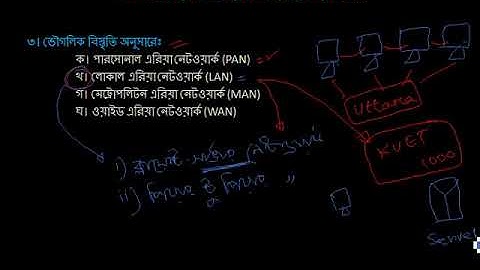 ৩। ভৌগলিক বিস্তৃতি অনুসারেঃ
ক। পারসোনাল এরিয়া নেটওয়ার্ক (PAN)
খ। লোকাল এরিয়া নেটওয়ার্ক (LAN)
গ। মেট্রোপলিটন এরিয়া নেটওয়ার্ক (MAN)
ঘ। ওয়াইড এরিয়া নেটওয়ার্ক (WAN)
Uttara
KUET
1000
i) ক্লায়েন্ট-সার্ভার নেটওয়ার্ক
ii) পিয়ার টু পিয়ার "
Server